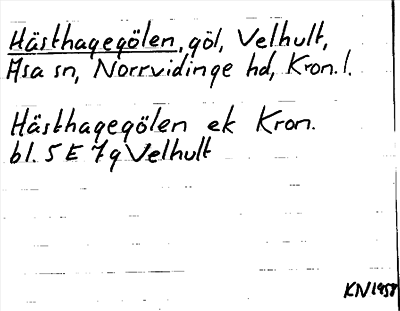 Hästhagegölen, göl, Velhult,
Asa sn, Norrvidinge hd, Kron. l.
Hästhagegölen ek Kron.
bl. 5 E 7 g Velhult
KN 1958